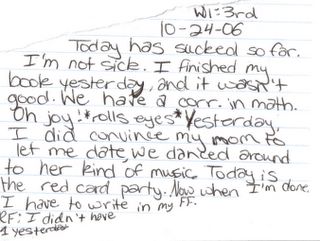 W1:3rd
10-24-06
Today has sucked so far.
I'm not sick. I finished my
book yesterday, and it wasn't
good. We have a corr. in math.
Oh joy! *rolls eyes* Yesterday,
I did convince my mom to
let me date, we danced around
to her kind of music. Today is
the red card party. Now when I'm done.
I have to write in my FF.
RF: I didn't have
1 yesterday